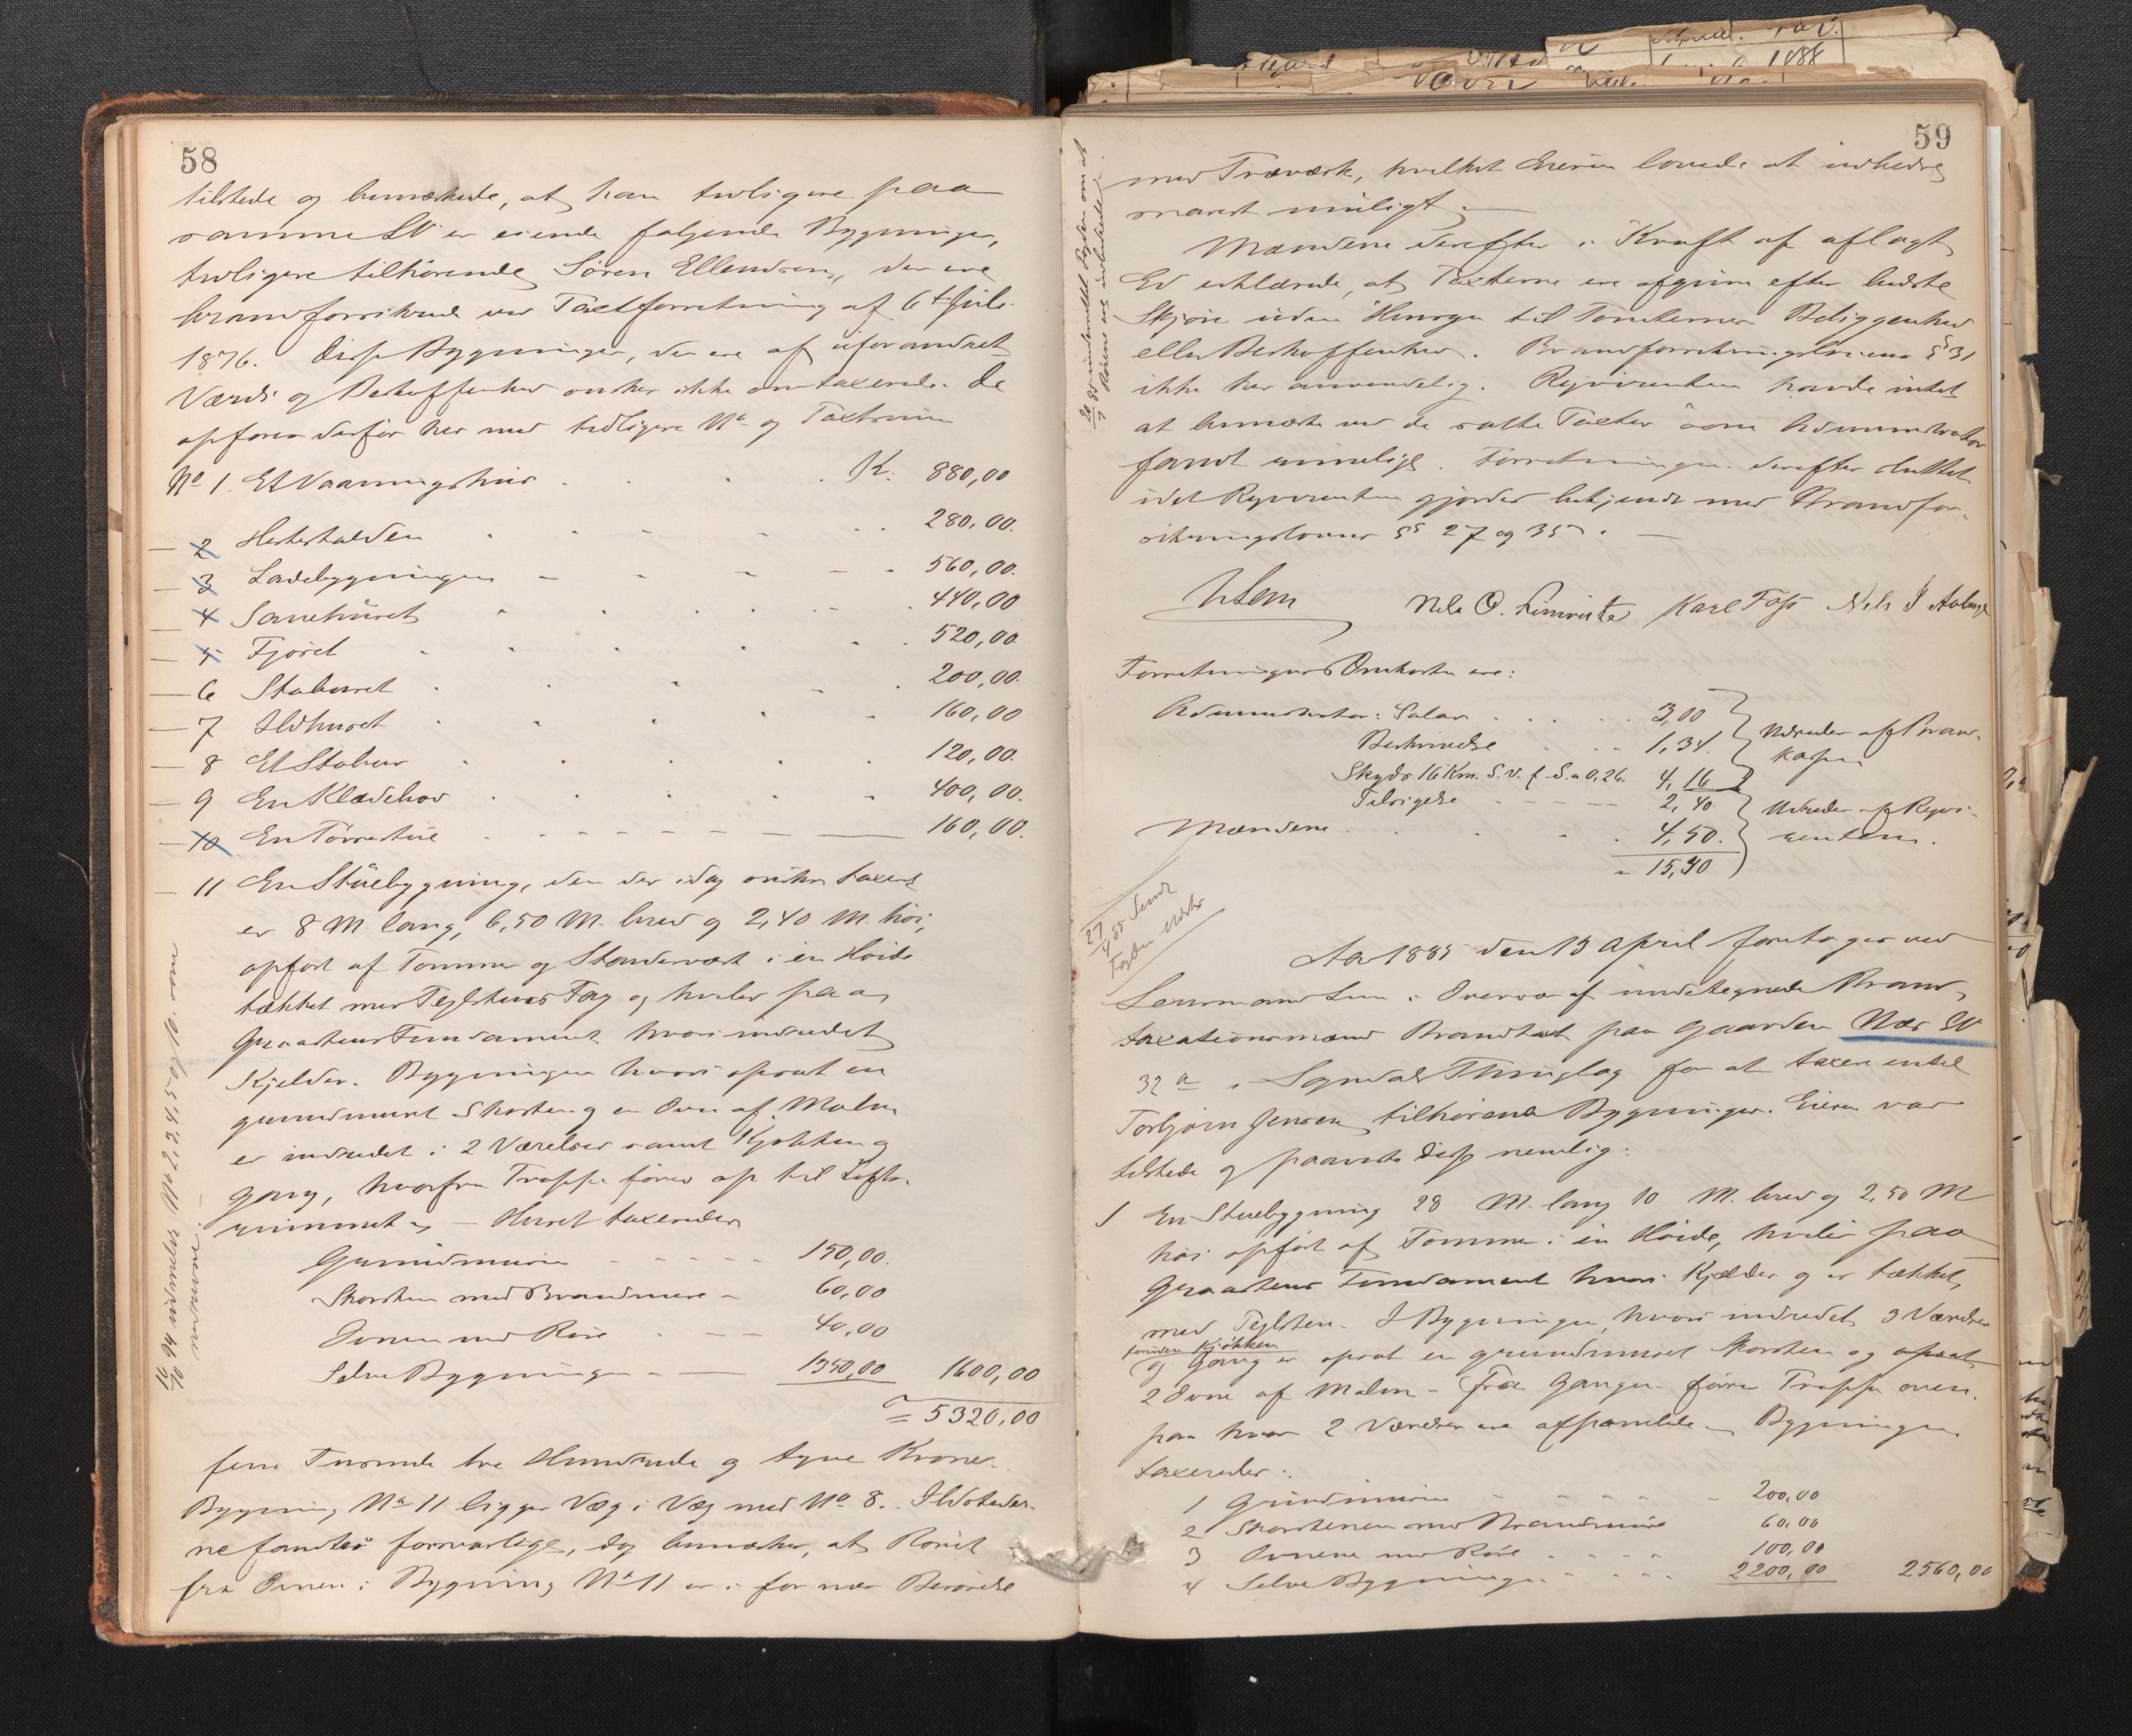 58
tilstede og bemærkede, at han tidligere paa
samme LN er eiende følgende Bygninger,
tidligere tilhørende Søren Ellendsen, der ere
brandforsikrede ved Taxtforretning af 6te Juli
1876. Disse Bygninger, der ere af uforandret
Værdi og Beskaffenhed ønskes ikke omtaxerede. De
opføres derfor her med tidligere No og Taxtsum
No 1. Et Vaaningshus K. 880,00
- 2 Hestestalden 280,00.
- 3 Ladebygningen 560,00.
- 4 440,00
- 5 Fjøset 520,00
- 6 Staburet 200,00.
- 7 Ildhuset 160,00
- 8 Et Stabur 120,00.
- 9 En Klædebod 400,00.
- 10 En Tørrestue 160,00.
- 11 En Stuebygning, den der idag ønskes taxeret
er 8 M. lang, 6,50 M. bred og 2,40 M. høi,
opført af Tømmer og Standerværk i en Høide
tækket med Teglstens Tag og hviler paa
Graasteens Fundament hvori indredet
Kjelder. Bygningen hvori opsat en
grundmuret Skorsten og en Ovn af Malm
er indredet i 2 Værelser samt Kjøkken og
Gang, hvorfra Trappe fører op til Lofts-
rummet – Huset taxeredes
Grundmuren 150,00.
Skorsten med Brandmure 60,00
Ovnen med Rør 40,00
Selve Bygningen 1350,00 1600,00
= 5320,00
fem Tusinde tre Hundrede og tyve Kroner.
Bygning No 11 ligger Væg i Væg med No 8. Ildsteder-
ne fandtes forsvarlige, dog bemærkes, at Røret
fra Ovnen i Bygning No 11 er i for nær Berørelse
16/10 94 udmeldes No 2, 3, 4, 5 og 10 som
nedrevne.
59
med Træværk, hvilket Eieren lovede at udbedre
snarest muligt.
Mændene derefter i Kraft af aflagt
Ed erklærede, at Taxterne ere afgivne efter bedste
Skjøn uden Hensyn til Tomternes Beliggenhed
eller Beskaffenhed. Brandforsikringslovens § 31
ikke her anvendelig. Rekvirenten havde intet
at bemærke ved de satte Taxter som Administrator
fandt rimelige. Forretningen derefter sluttet
idet Rekvirenten gjordes bekjendt med Brandfor-
sikringslovens §§ 27 og 35.
Lem Nils O. Karl Foss Nils J
Forretningens Omkostn. ere:
Administrator: Salær 3,00
Beskrivelse 1,34.
Skyds 16 Km. S. V. f. S. a 0,26. 4,16
Udredes af Brand-
kassen
Tilsigelse 2,40
Mændene 4,50.
Udredes af Rekvi-
renten.
15,40
27/4 85 Sendt
Fogden
Aar 1885 den 13 April foretoges ved
Lensmand Lem i Overvær af undertegnede Brand-
taxationsmænd Brandtaxt paa Gaarden Nær LN
32 a i Sogndals Thinglag for at taxere endel
Torbjørn Jensen tilhørende Bygninger. Eieren var
tilstede og paaviste disse nemlig:
1 En Stuebygning 28 M. lang 10 M. bred og 2,50 M
høi opført af Tømmer i en Høide, hviler paa
Graasteens Fundament hvori Kjælder og er tækket
med Teglsten. I Bygningen, hvori indredet 3 Værelser
foruden Kjøkken
og Gang er opsat en grundmuret Skorsten og opsat
2 Ovne af Malm – Fra Gangen fører Trappe oven-
paa hvor 2 Værelser ere afpanelede – Bygningen
taxeredes:
1 Grundmuren 200,00
2 Skorstenen med Brandmure 60,00
3 Ovnene med Rør 100,00
4 Selve Bygningen 2200,00 2560,00